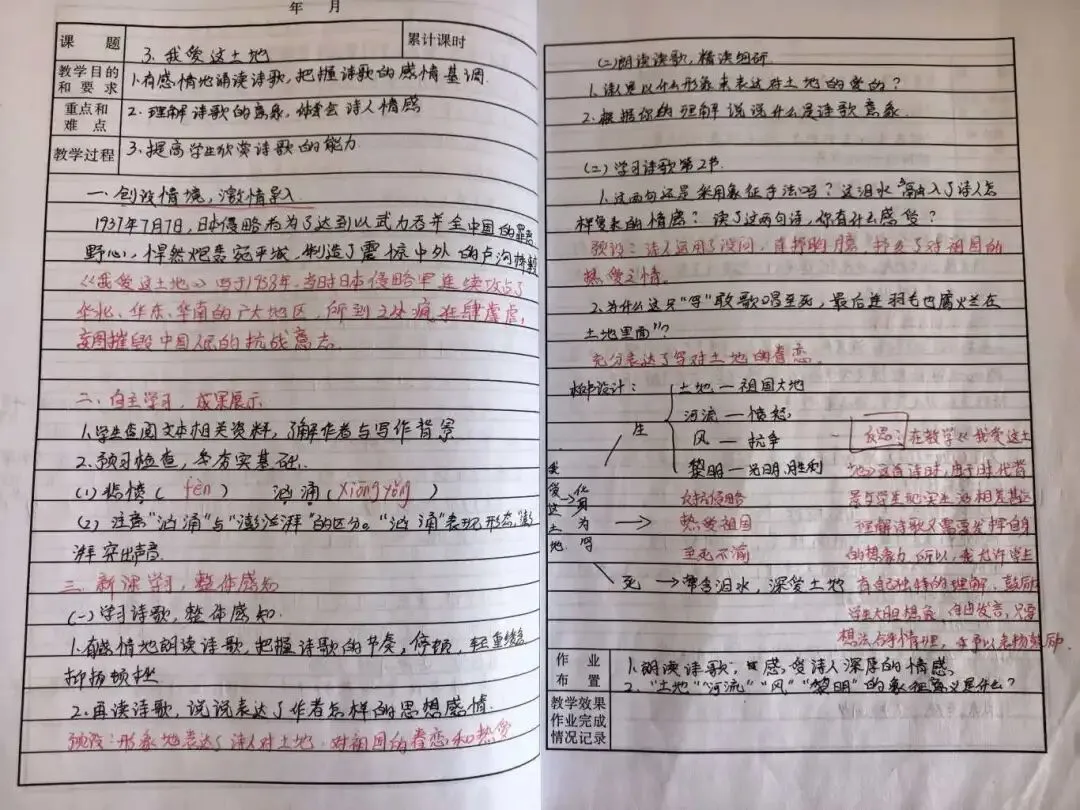 年 月
课 题 3. 我爱这土地 累计课时
教学目的和要求 1.有感情地诵读诗歌,把握诗歌的感情基调.
重点和难点 2.理解诗歌的意象,体会诗人情感
教学过程 3.提高学生欣赏诗歌的能力
一.创设情境,激情导入
1937年7月7日,日本侵略者为了达到以武力吞并全中国的罪恶
野心,悍然炮轰宛平城,制造了震惊中外的卢沟桥事变
《我爱这土地》写于1938年,当时日本侵略军连续攻占了
华北、华东、华南的广大地区,所到之处疯狂肆虐,
妄图摧毁中国人民的抗战意志.
二、自主学习,成果展示
1.学生查阅文本相关资料,了解作者与写作背景
2.预习检查,夯实基础.
(1)悲愤(fèn) 汹涌(xiōng yǒng)
(2)注意"汹涌"与"澎湃"的区分。"汹涌"表现形态,"澎
湃"突出声音.
三.新课学习,整体感知
(一)学习诗歌,整体感知.
1.有感情地朗读诗歌,把握诗歌的节奏,停顿,轻重缓急
抑扬顿挫
2.再读诗歌,说说表达了作者怎样的思想感情.
预设:形象地表达了诗人对土地、对祖国的眷恋和热爱
(二)朗读诗歌,精读细研
1.诗人是以什么形象来表达对土地的爱的?
2.根据你的理解说说什么是诗歌意象
(二)学习诗歌第2节.
1.这两句还是采用象征手法吗?这泪水饱含了诗人怎
样复杂的情感?读了这两句诗,你有什么感受?
预设:诗人运用了设问,直抒胸臆,抒发了对祖国的
热爱之情.
2.为什么这只"鸟"敢歌唱至死,最后连羽毛也腐烂在
土地里面"?
充分表达了鸟对土地的眷恋.
板书设计:
土地—祖国大地
河流—愤怒
生
风—抗争
黎明—光明,胜利
我爱这土地
化身为鸟
反抗侵略
热爱祖国
至死不渝
死→常含泪水,深爱土地
反思:在教学《我爱这土
地》这首诗时,由于时代背
景与学生现实生活相差甚远
理解诗歌又需要发挥自身
的想象力,所以,我允许学生
有自己独特的理解,鼓励
学生大胆想象,自由发言,只要
想法合乎情理,予以表扬鼓励.
作业布置 1.朗读诗歌,感受诗人深厚的情感.
2."土地""河流""风""黎明"的象征意义是什么?
教学效果
作业完成
情况记录